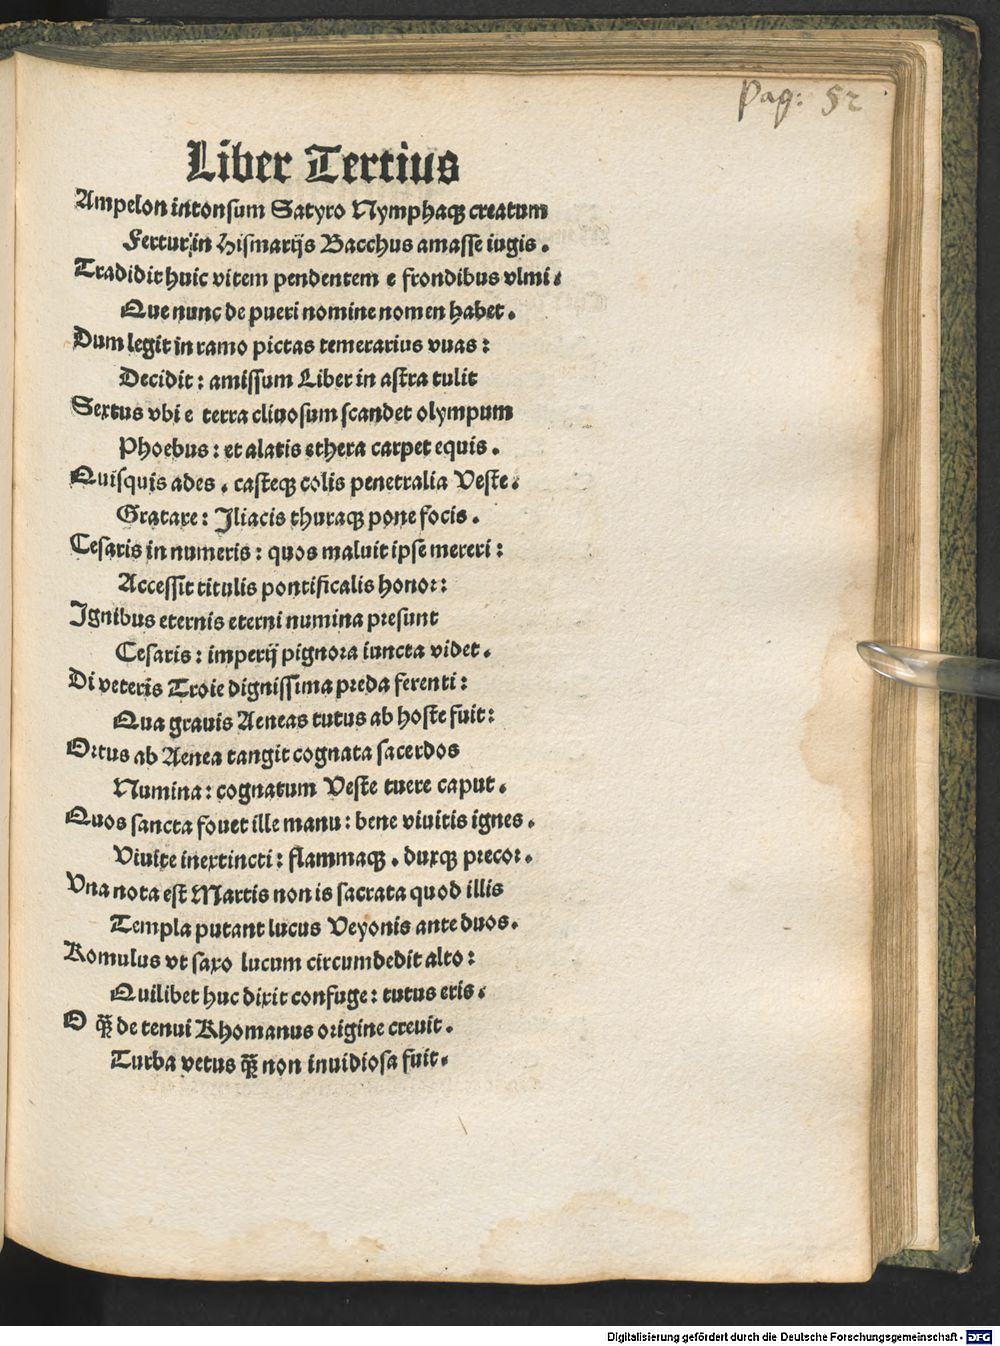 Pag: 52
Liber Tertius
Ampelon intonsum Satyro Nymphaqꝫ creatum
Fertur in Hismarijs Bacchus amasse iugis.
Tradidit huic vitem pendentem e frondibus vlmi:
Que nunc de pueri nomine nomen habet.
Dum legit in ramo pictas temerarius vuas:
Decidit: amissum Liber in astra tulit
Sextus vbi e terra cliuosum scandet olympum
Phoebus: et alatis ethera carpet equis.
Quisquis ades. casteqꝫ colis penetralia Veste:
Gratare: Iliacis thuraqꝫ pone focis.
Cesaris in numeris: quos maluit ipse mereri:
Accessit titulis pontificalis honor:
Ignibus eternis eterni numina presunt
Cesaris: imperij pignora iuncta videt.
Di veteris Troie dignissima preda ferenti:
Qua grauis Aeneas tutus ab hoste fuit:
Ortus ab Aenea tangit cognata sacerdos
Numina: cognatum Veste tuere caput.
Quos sancta fouet ille manu: bene viuitis ignes.
Viuite inextincti: flammaqꝫ. duxqꝫ precor.
Vna nota est Martis non is sacrata quod illis
Templa putant lucus Veyonis ante duos.
Romulus vt saxo lucum circumdedit alto:
Quilibet huc dixit confuge: tutus eris.
O qꝫ̃ de tenui Rhomanus origine creuit.
Turba vetus qꝫ̃ non inuidiosa fuit.
Digitalisierung gefördert durch die Deutsche Forschungsgemeinschaft - DFG